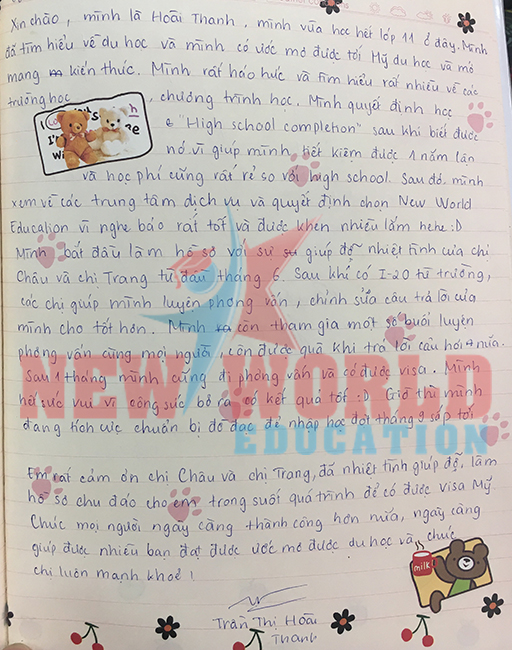 Xin chào, mình là Hoài Thanh, mình vừa học hết lớp 11 ở đây. Mình
đã tìm hiểu về du học và mình có ước mơ được tới Mỹ du học và mở
mang kiến thức. Mình rất háo hức và tìm hiểu rất nhiều về các
trường học, chương trình học. Mình quyết định học
"High school completion" sau khi biết được
nó vì giúp mình tiết kiệm được 1 năm lận
và học phí cũng rất rẻ so với high school. Sau đó, mình
xem về các trung tâm dịch vụ và quyết định chọn New World
Education vì nghe bảo rất tốt và được khen nhiều lắm hehe :D
Mình bắt đầu làm hồ sơ với sự giúp đỡ nhiệt tình của chị
Châu và chị Trang từ đầu tháng 6. Sau khi có I-20 từ trường,
các chị giúp mình luyện phỏng vấn, chỉnh sửa câu trả lời của
mình cho tốt hơn. Mình còn tham gia một số buổi luyện
phỏng vấn cùng mọi người, còn được quà khi trả lời câu hỏi nữa.
Sau 1 tháng mình cũng đi phỏng vấn và có được visa. Mình
hết sức vui vì công sức bỏ ra có kết quả tốt :D Giờ thì mình
đang tích cực chuẩn bị đồ đạc để nhập học đợt tháng 9 sắp tới
NEW WORLD
EDUCATION
Em rất cảm ơn chị Châu và chị Trang, đã nhiệt tình giúp đỡ, làm
hồ sơ chu đáo cho em trong suốt quá trình để có được visa Mỹ
Chúc mọi người ngày càng thành công hơn nữa, ngày càng
giúp được nhiều bạn đạt được ước mơ được du học và chúc
chị luôn mạnh khoẻ!
milk
Trần Thị Hoài
Thanh